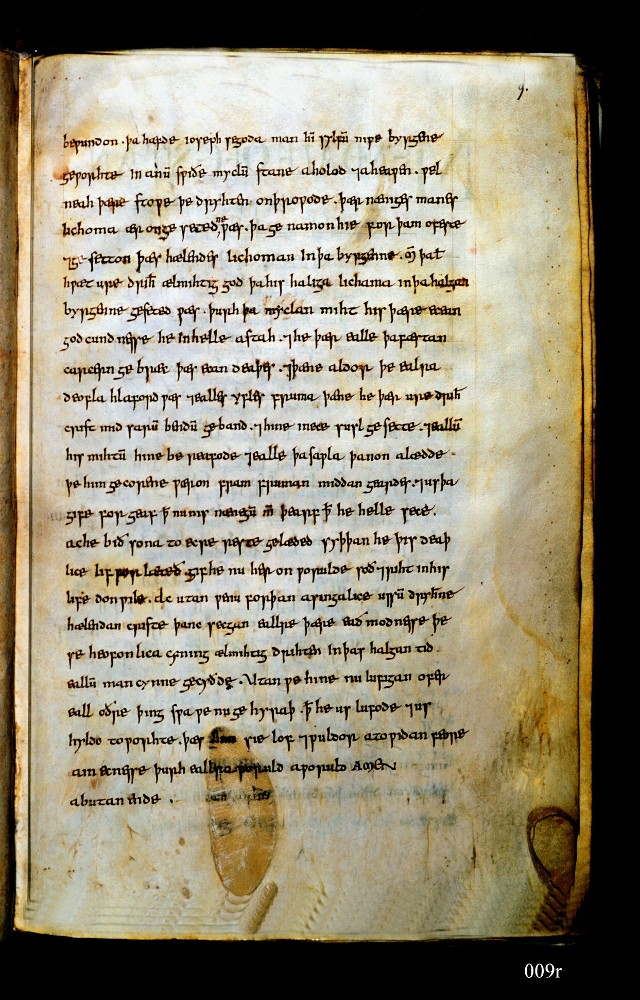 9.
bewundon. þa hæfde ioseph se goda man hī sylfū niwe byrgene
geworhte in anū swiðe myclū stane aholod ⁊ aheawen. wel
neah þære stowe þe dryhten onþrowode. þær nænges mannes
lichoma ær on ge seted ne wæs. þa ge namon hie for þam ofeste
⁊ ge setton þæs hælendes lichoman In þa byrgenne.
hwæt ure driħ ælmihtig god þa his haliga lichama in þa halgan
byrgenne geseted wæs. þurh þa myclan miht his þære ecan
god cund nesse he in helle astah. ⁊ he þær ealle þa fæstan
carcern ge bræc þæs ecan deaþes. ⁊ þæne aldor þe ealra
deofla hlaford wæs ⁊ ealles yfles fruma þæne he þær ure driħ
crist mid sarū bendū geband. ⁊ hine in ece susl ge sette. ⁊ eallū
his mihtū hine be reafode ⁊ ealle þa sawla þanon alædde
þe him gecorene wæron fram fruman middan geardes. ⁊ us þa
gife for geaf ꝥ nu nis nængū m̄ þearf ꝥ he helle sece.
ac he bið sona to ecre reste gelæded syþþan he þis deaþ
lice lif for læted. gif he nu her on worulde soð ⁊ riht in his
life don wile. Ac utan we nu forþan a singalice ussū dryhtne
hælendan criste þanc secgan ealre þære ead modnesse þe
se heofon lica cyning ælmihtig drihten In þas halgan tid
eallū man cynne gecydde. Utan we hine nu lufigan ofer
eall oðre þing swa we nu ge hyraþ. ꝥ he us lufode ⁊ us
hyldo to worhte. þæs him sie lof ⁊ wuldor a to widan feore
a in ecnesse þurh ealra woruld a woruld AMEN
abutan ende.
009r